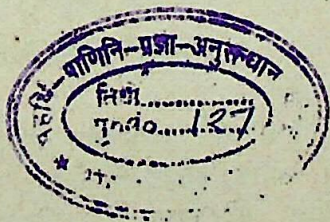 महर्षि-पाणिनि-प्रज्ञा-अनुसन्धान
तिथि..................
पु.सं०......127......